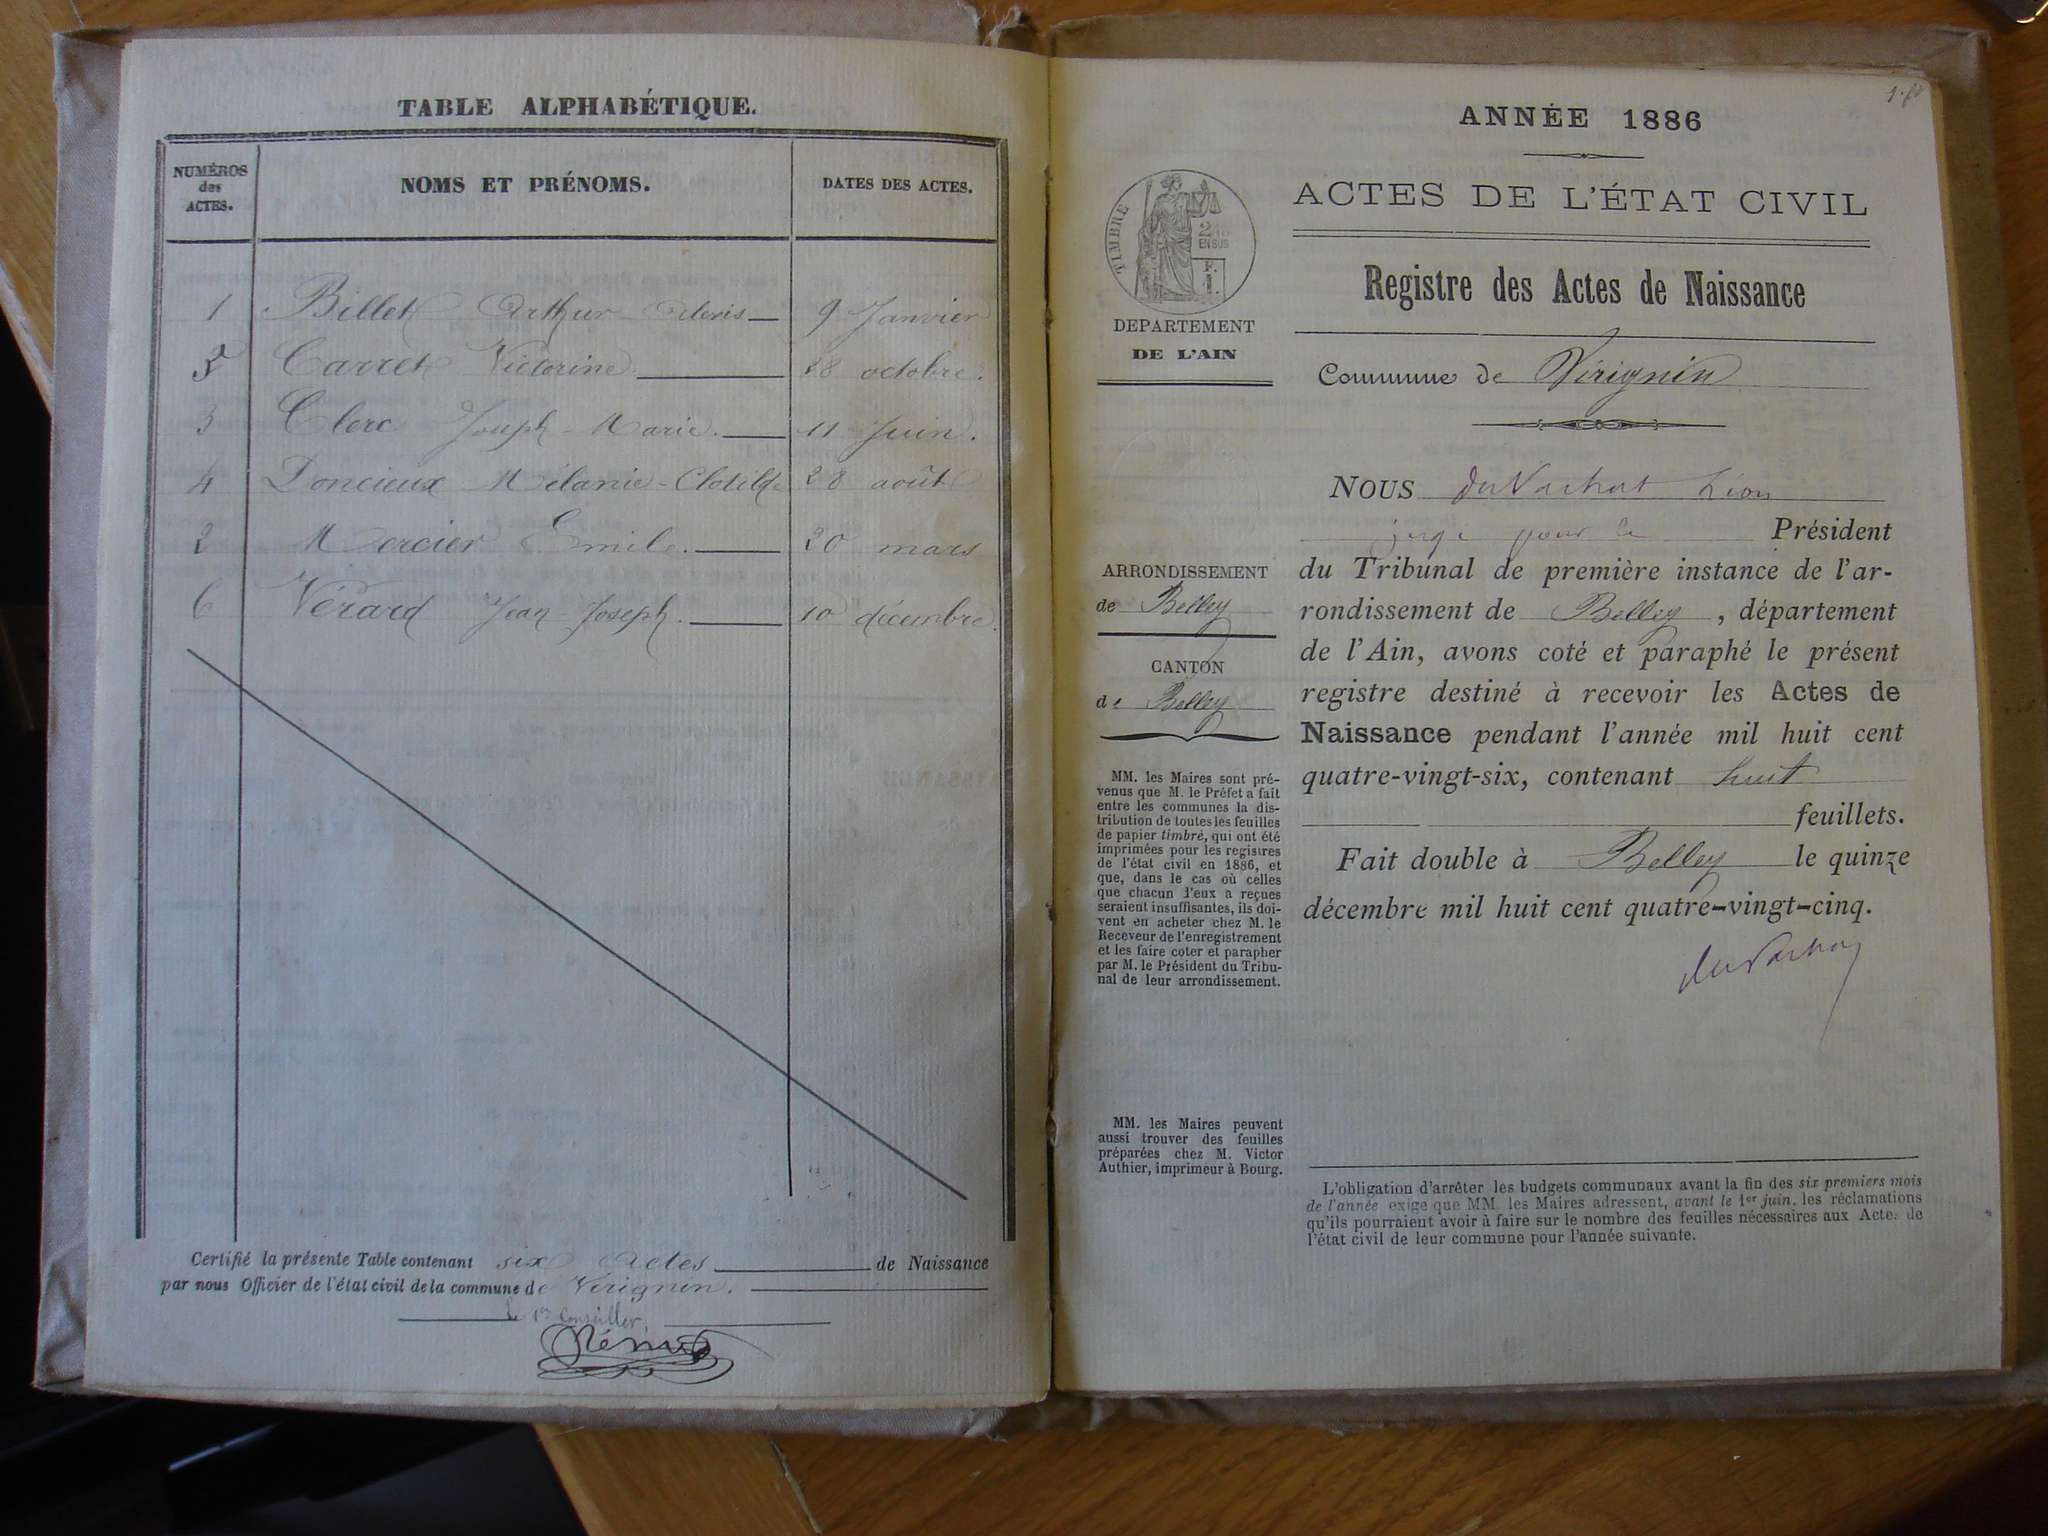 TABLE ALPHABÉTIQUE.
NUMÉROS
des
ACTES.
NOMS ET PRÉNOMS.
DATES DES ACTES.
1 Billet Arthur Alexis 9 Janvier
5 Carret Victorine 28 octobre.
3 Clerc Joseph-Marie. 11 Juin.
4 Doncieux Mélanie-Clotilde 28 août
2 Mercier Emile. 20 mars
6 Vérard Jean-Joseph. 10 décembre.
Certifié la présente Table contenant six Actes de Naissance
par nous Officier de l'état civil de la commune de Virignin.
Le 1er Conseiller,
ANNÉE 1886
TIMBRE
EN SUS
DEPARTEMENT
DE L'AIN
ACTES DE L'ÉTAT CIVIL
Registre des Actes de Naissance
Commune de Virignin
ARRONDISSEMENT
de Belley
CANTON
de Belley
MM. les Maires sont pré-
venus que M. le Préfet a fait
entre les communes la dis-
tribution de toutes les feuilles
de papier timbré, qui ont été
imprimées pour les registres
de l'état civil en 1886, et
que, dans le cas où celles
que chacun d'eux a reçues
seraient insuffisantes, ils doi-
vent en acheter chez M. le
Receveur de l'enregistrement
et les faire coter et parapher
par M. le Président du Tribu-
nal de leur arrondissement.
MM. les Maires peuvent
aussi trouver des feuilles
préparées chez M. Victor
Authier, imprimeur à Bourg.
NOUS Léon
juge pour le Président
du Tribunal de première instance de l'ar-
rondissement de Belley, département
de l'Ain, avons coté et paraphé le présent
registre destiné à recevoir les Actes de
Naissance pendant l'année mil huit cent
quatre-vingt-six, contenant huit
feuillets.
Fait double à Belley le quinze
décembre mil huit cent quatre-vingt-cinq.
L'obligation d'arrêter les budgets communaux avant la fin des six premiers mois
de l'année exige que MM. les Maires adressent, avant le 1er juin, les réclamations
qu'ils pourraient avoir à faire sur le nombre des feuilles nécessaires aux Actes de
l'état civil de leur commune pour l'année suivante.